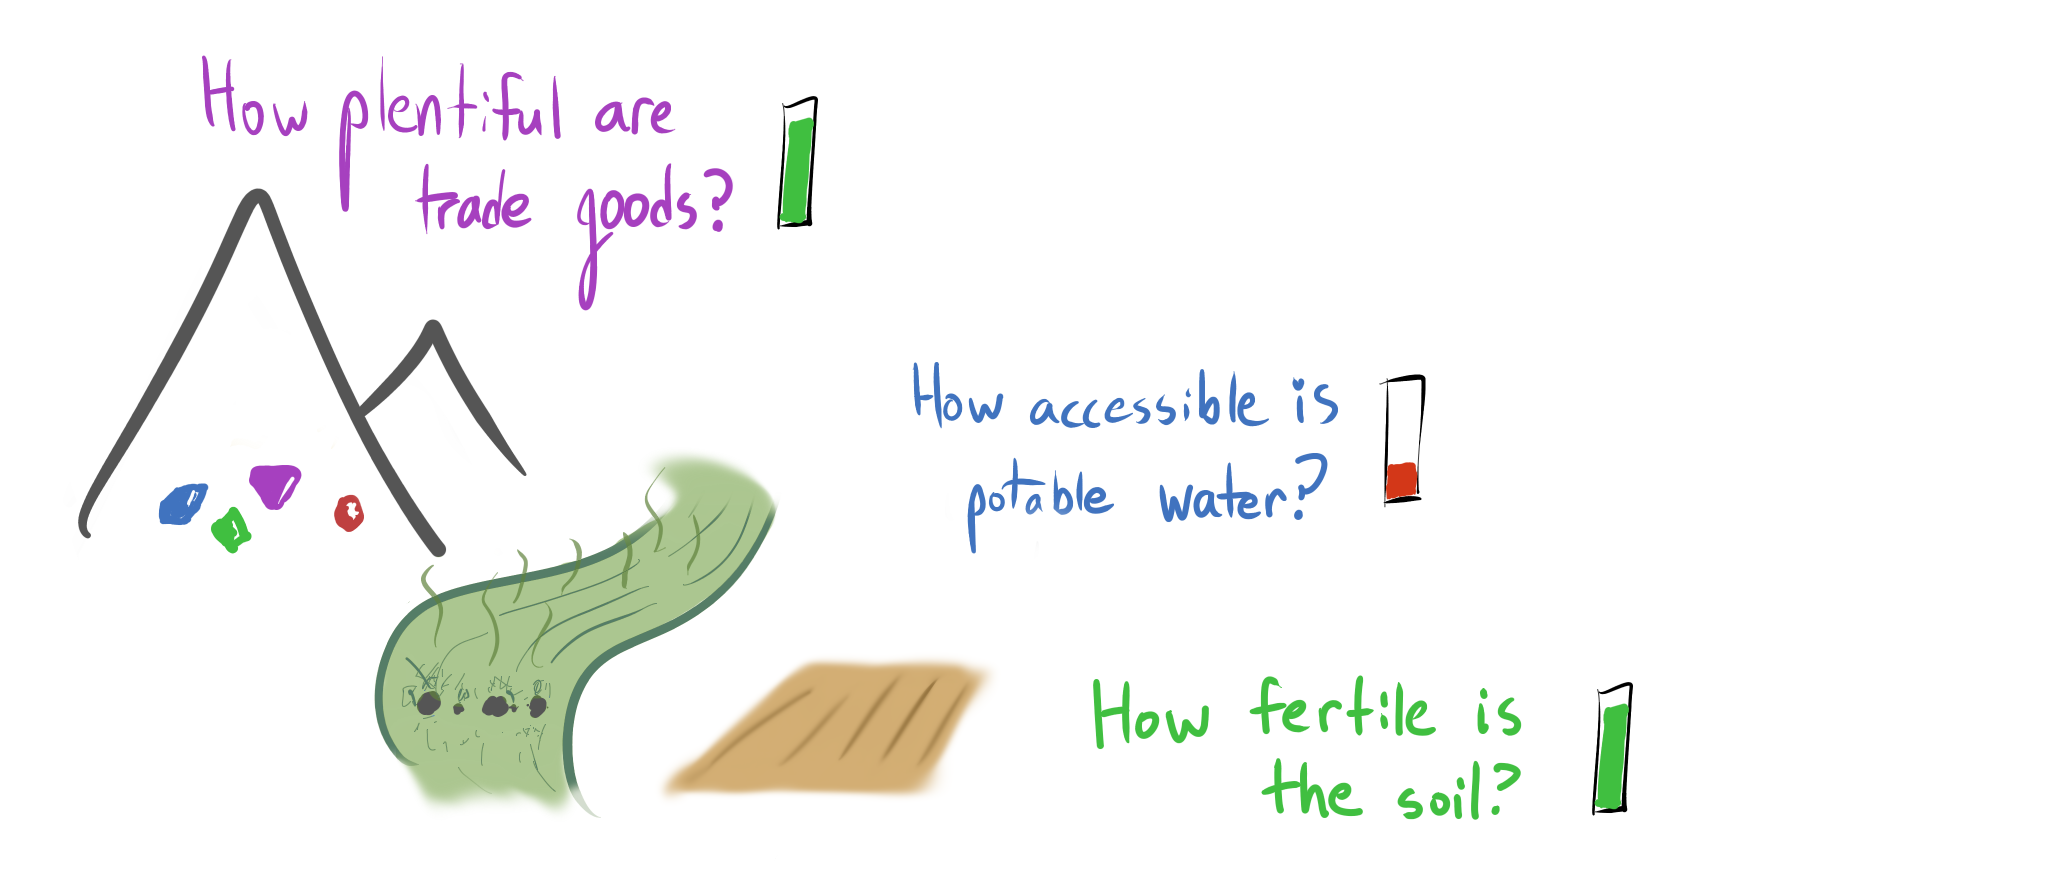 How plentiful are
trade goods?
How accessible is
potable water?
How fertile is
the soil?